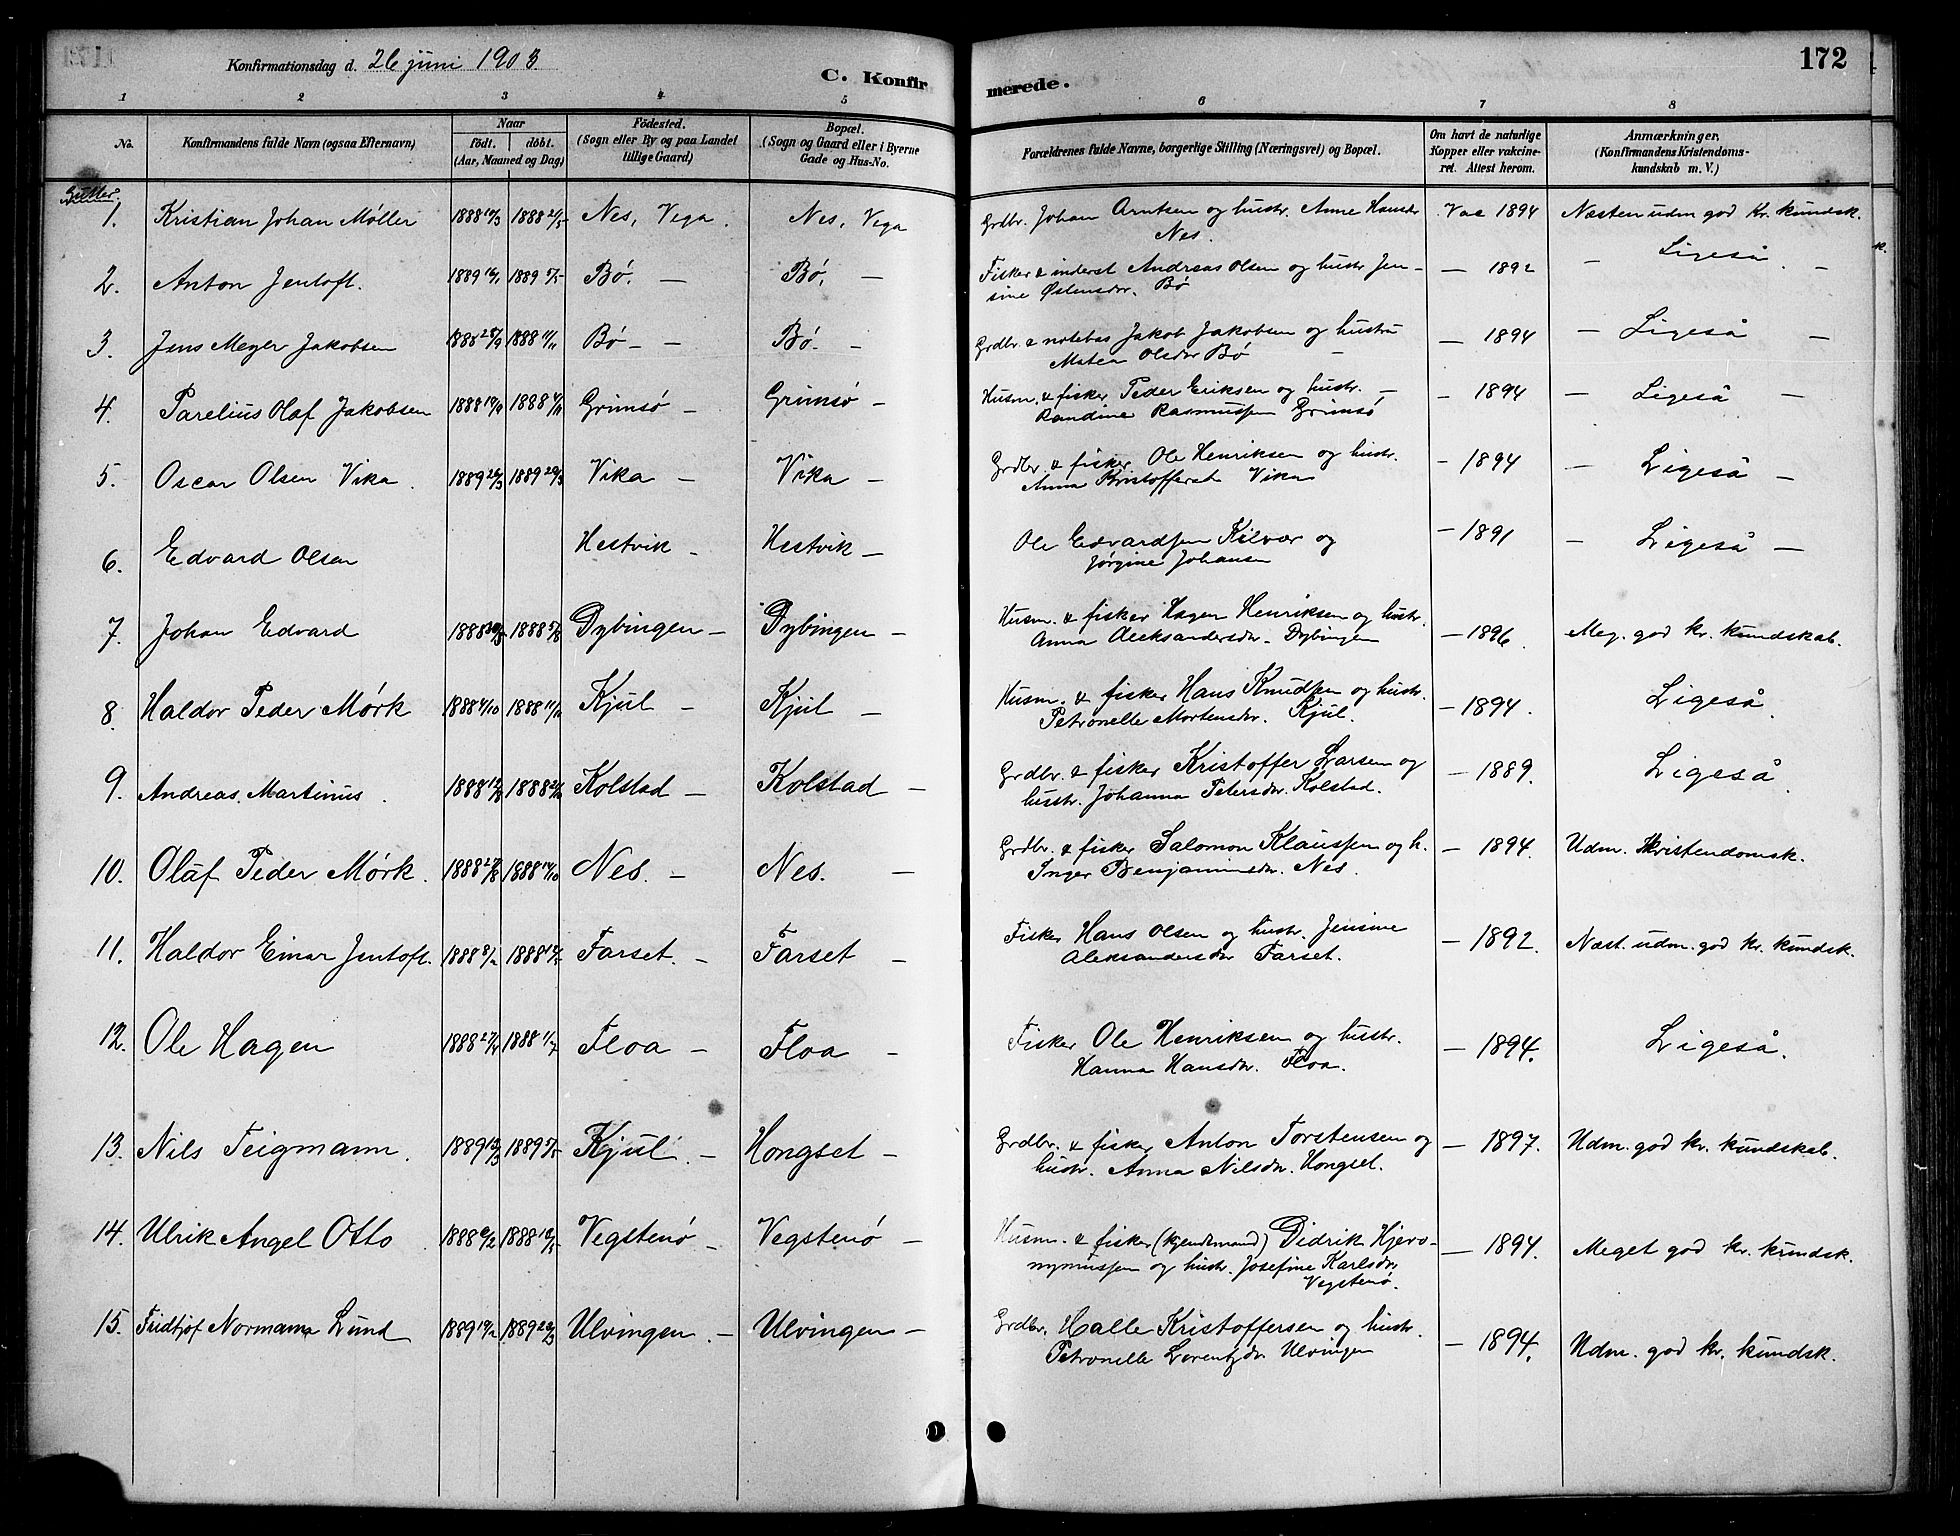 172
Konfirmationsdag d. 26 juni 1903
C. Konfirmerede.
1 2 3 4 5 6 7 8
No.
Konfirmandens fulde Navn (ogsaa Efternavn)
Naar
født. døbt.
(Aar, Maaned og Dag)
Fødested.
(Sogn eller By og paa Landet
tillige Gaard)
Bopæl.
(Sogn og Gaard eller i Byerne
Gade og Hus-No.
Forældrenes fulde Navne, borgerlige Stilling (Næringsvei) og Bopæl.
Om havt de naturlige
Kopper eller vakcineret.
Attest herom.
Anmærkninger.
(Konfirmandens Kristendomskundskab
m. V.)
Gutter.
1. Kristian Johan Møller 1888 1888 Nes, Vega. Nes, Vega Grdbr. Johan Arntsen og hustr. Anne Hansdr Vac 1894 Næsten udm god kr. kundsk.
Nes.
2. Anton Jentoft. 1889 1889 Bø. — Bø, — Fisker & inderst Andreas Olsen og hustr Jen- — 1892 — Ligeså —
sine Østensdr. Bø
3. Jens Meyer Jakobsen 1888 28/9 1888 Bø — — Bø. — Grdbr. & notebas Jakob Jakobsen og hustru — 1894 — Ligeså —
Matea Olsdr Bø —
4. Parelius Olaf Jakobsen 1888 1888 Grimsø — Grimsø — Husm. & fisker Peder Eriksen og hustr. — — 1894 — Ligeså —
Randine Rasmussen Grimsø
5. Oscar Olsen Vika. 1889 1889 Vika — Vika — Grdbr. & fisker Ole Henriksen og hustr. — 1894 — Ligeså —
Anna Vika
6. Edvard Olsen Hestvik — Hestvik — Ole Edvardsen Kilvær og — 1891 — Ligeså —
Jørgine Johansen
7. Johan Edvard 1888 1888 5/8 Dybingen — Dybingen — Husm. & fisker Hagen Henriksen og hustr. — 1896. Meg. god kr. kundskab.
Anna Aleksandersdr. Dybingen
8. Haldor Peder Mørk 1888 1888 Kjul — Kjul — Husm. & fisker Hans Knudsen og hustr. — 1894. Ligeså.
Petronelle Mortensdr. Kjul.
9. Andreas Martinus. 1888 1888 Kolstad — Kolstad — Grdbr. & fisker Kristoffer Larsen og — 1889. Ligeså.
hustr. Johanna Petersdr. Kolstad.
10. Olaf Peder Mørk. 1888 27/8 1888 14/10 Nes. — Nes. — Grdbr. & fisker Salomon Klaussen og h. — 1894. Udm. Kristendomsk.
Inger Benjaminsdr. Nes.
11. Haldor Einar Jentoft. 1888 1888 Farset. — Farset — Fisker Hans Olsen og hustr. Jensine — 1892. Næst. udm. god kr. kundsk.
Aleksandersdr Farset.
12. Ole Hagen 1888 1888 Floa — Floa — Fisker Ole Henriksen og hustr. — 1894. Ligeså.
Hanna Hansdr. Floa.
13. Nils Teigmann. 1889 1889 Kjul. — Hongset — Grdbr. & fisker Anton Torstensen og — 1897. Udm. god kr. kundskab.
hustr. Anna Nilsdr. Hongset.
14. Ulrik Angel Otto 1888 1888 Vegstenø — Vegstenø — Husm. & fisker (kjendtmand) Didrik Hjero- — 1894. Meget god kr. kundsk.
nymussen og hustr. Josefine Karlsdr.
Vegstenø.
15. Fridtjof Normann Lund 1889 1889 Ulvingen. — Ulvingen — Grdbr. Halle Kristoffersen og hustr. — 1894. Udm. god kr. kundsk.
Petronelle Lorentzdr. Ulvingen